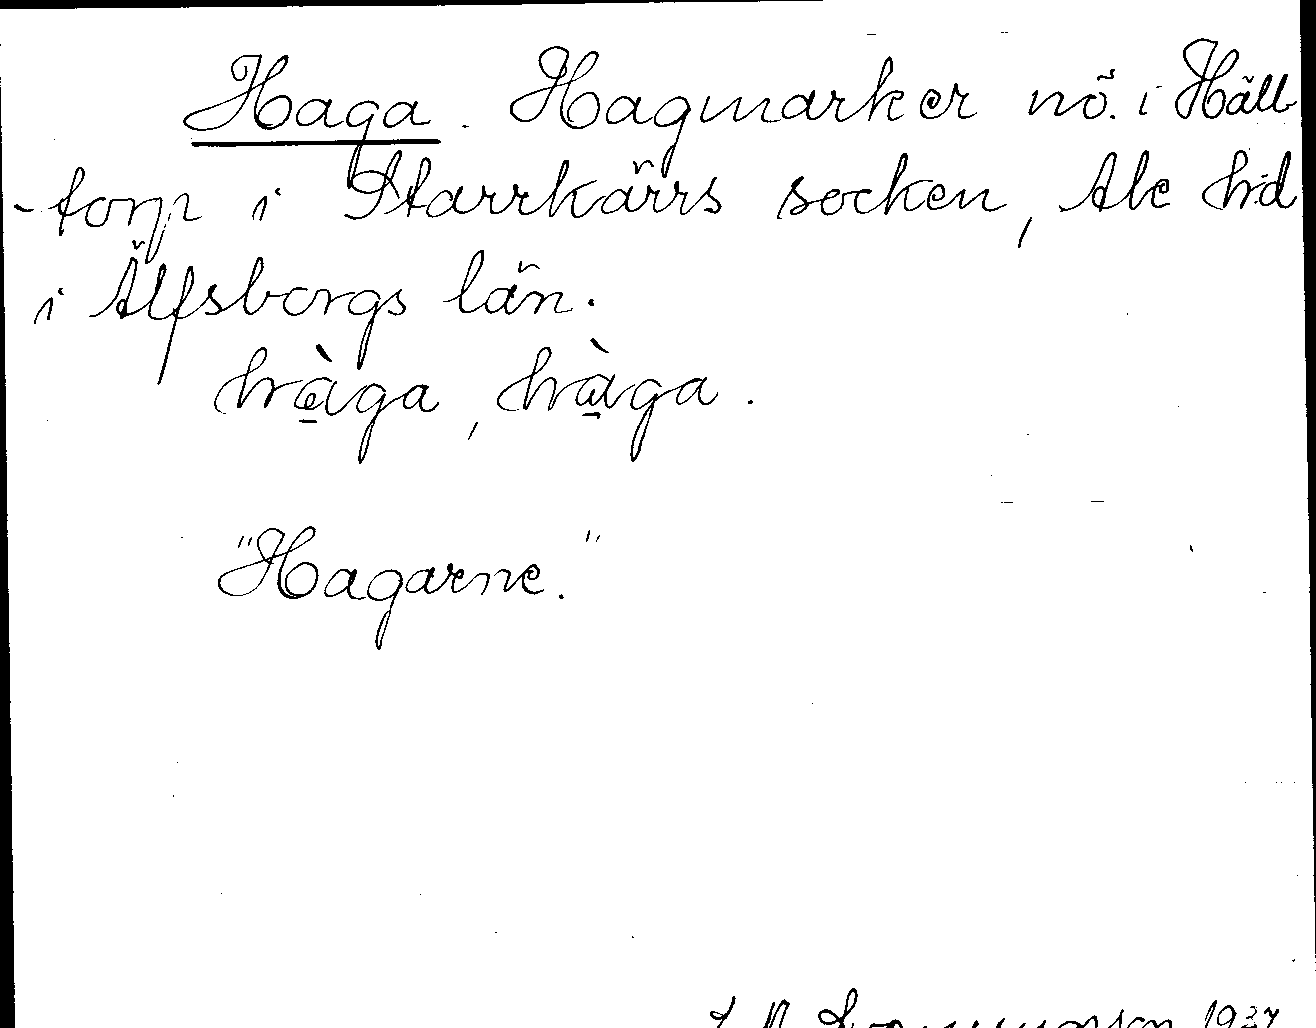 Haga. Hagmarker nö. i Häll-
-torp i Starrkärrs socken, Ale hd
i Älfsborgs län.
hàga, hàga.
"Hagarne."
1937